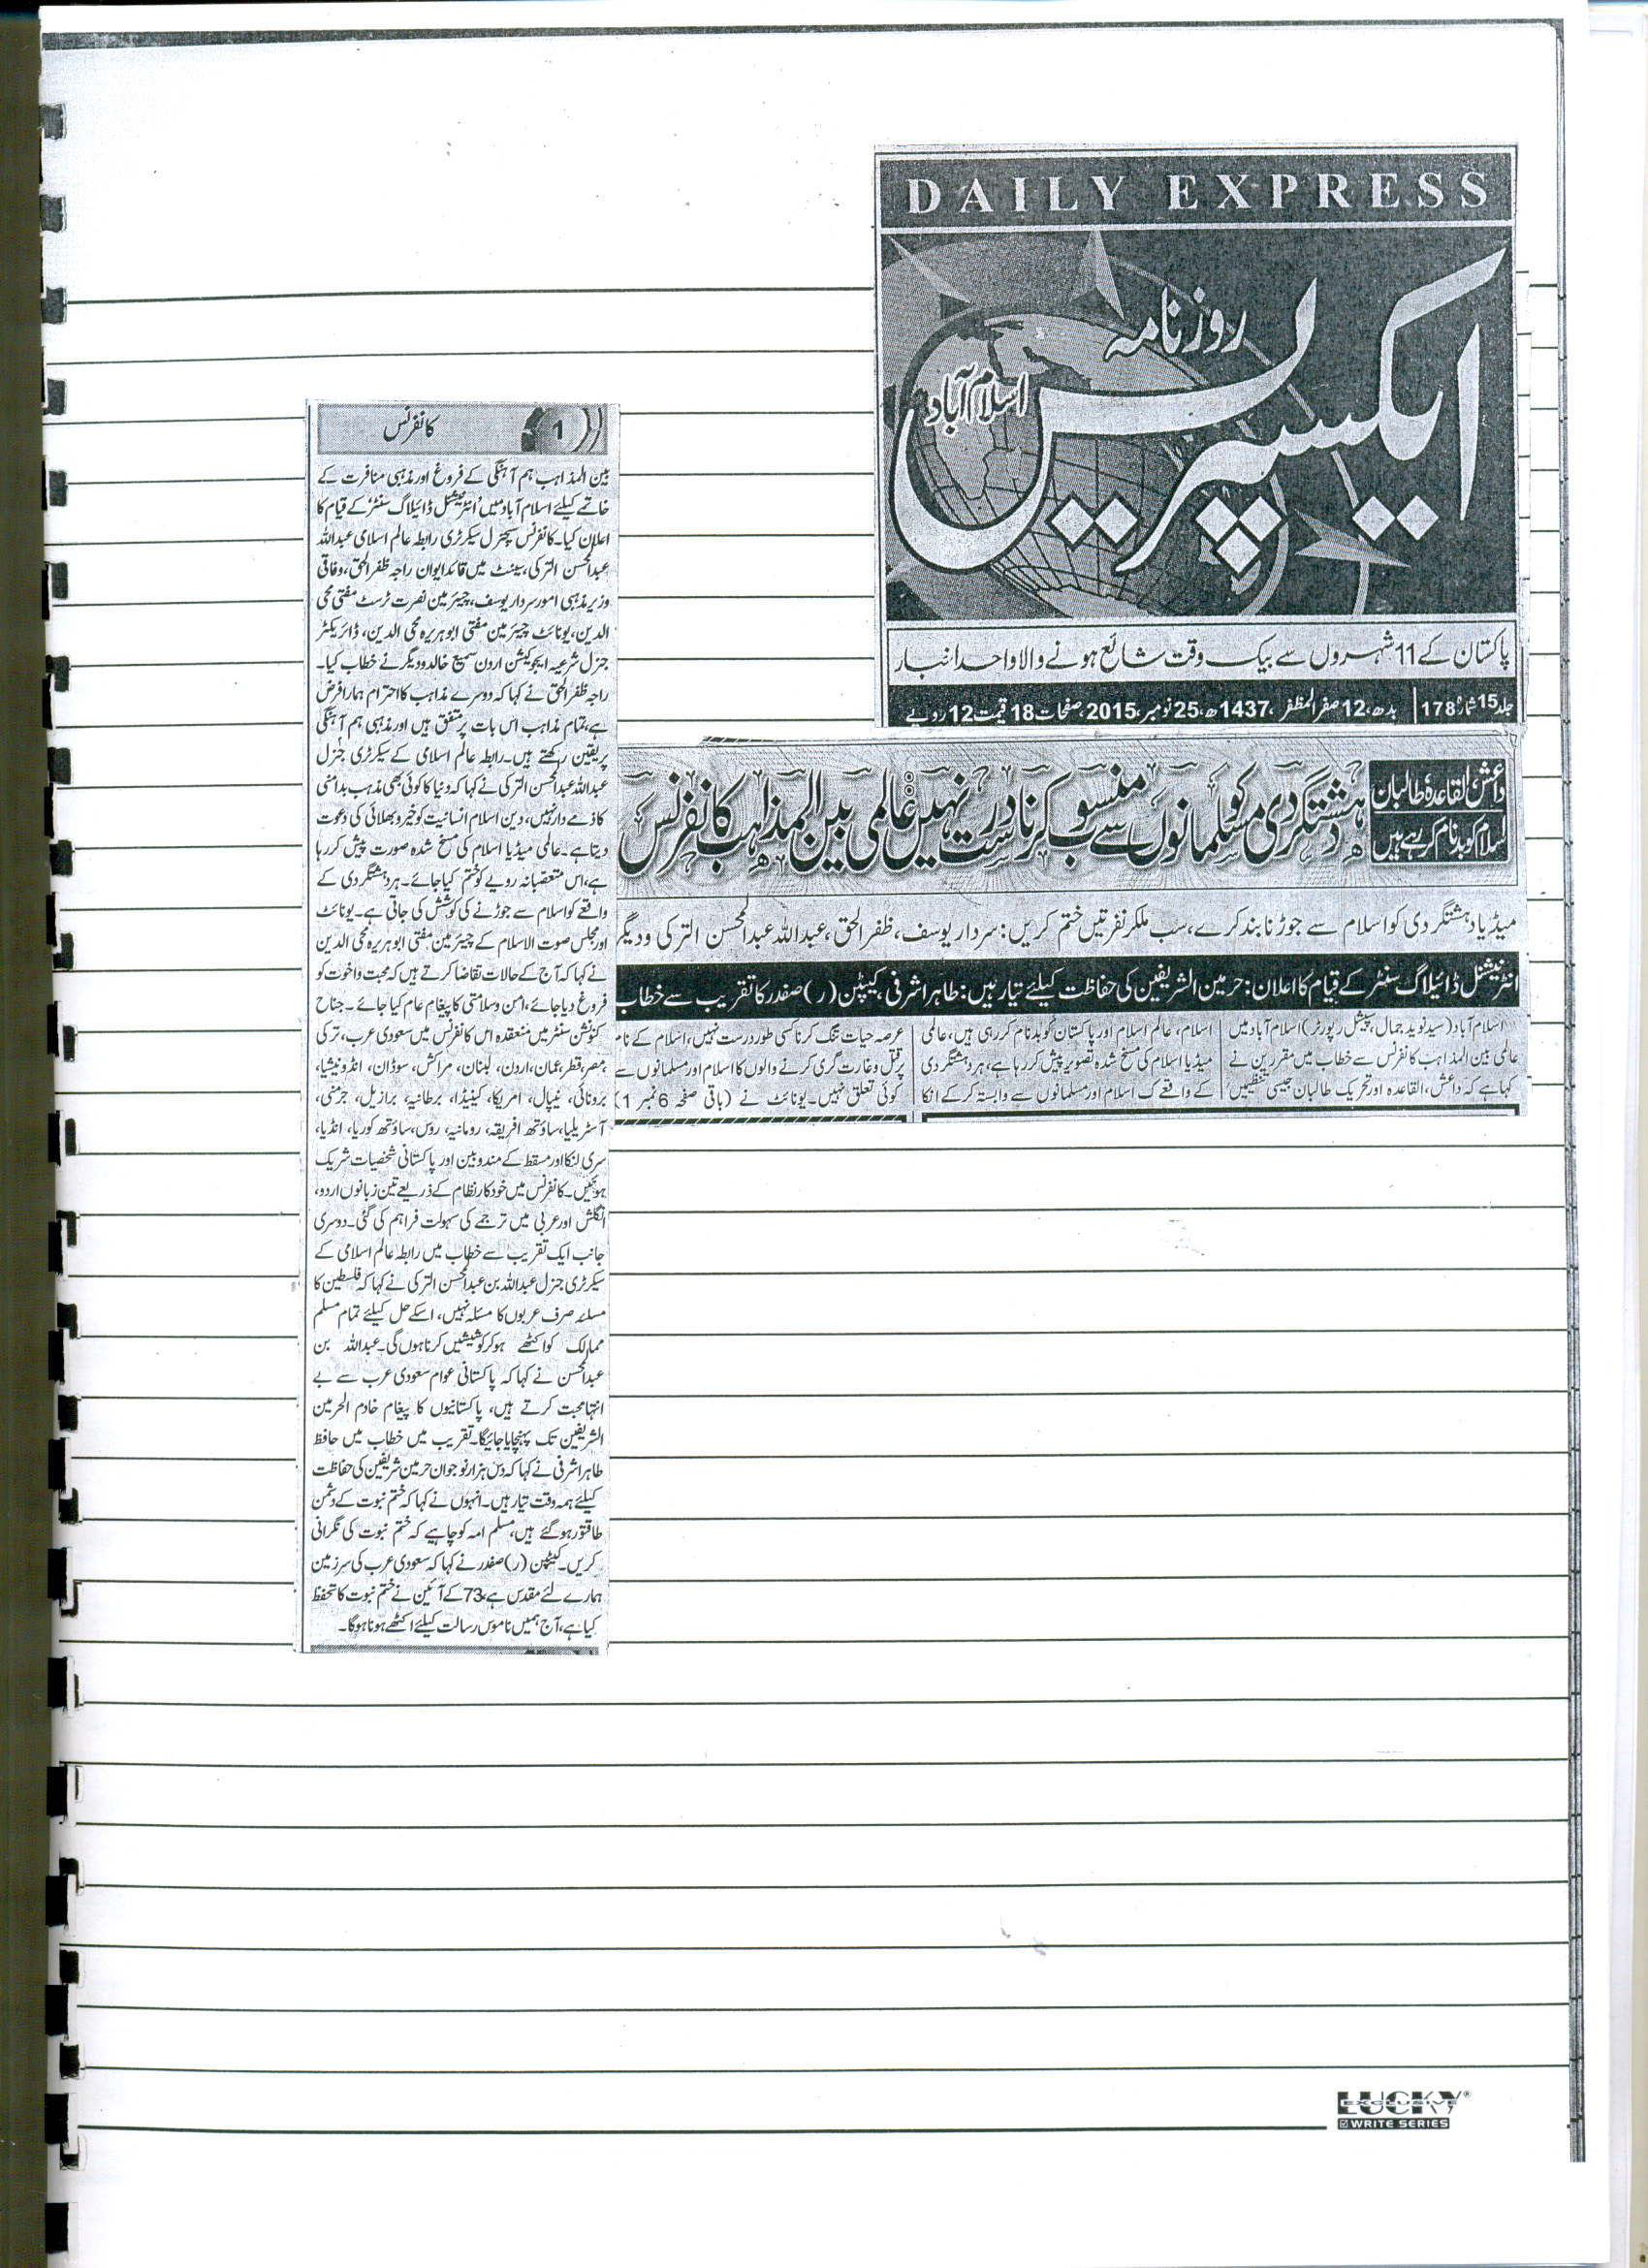 DAILY EXPRESS
روزنامہ
ایکسپریس
اسلام آباد
پاکستان کے 11 شہروں سے بیک وقت شائع ہونے والا واحد اخبار
جلد 15 شمارہ 178 بدھ، 12 صفر المظفر، 1437ھ، 25 نومبر، 2015، صفحات 18 قیمت 12 روپے
داعش، القاعدہ، طالبان
اسلام کو بدنام کر رہے ہیں
دہشتگردی کو مسلمانوں سے منسوب کرنا درست نہیں، عالمی بین المذاہب کانفرنس
میڈیا دہشتگردی کو اسلام سے جوڑنا بند کرے، سب ملکر نفرتیں ختم کریں: سردار یوسف، ظفر الحق، عبداللہ عبدالمحسن الترکی ودیگر
انٹرنیشنل ڈائیلاگ سنٹر کے قیام کا اعلان: حرمین الشریفین کی حفاظت کیلئے تیار ہیں: طاہر اشرفی، کیپٹن (ر) صفدر کا تقریب سے خطاب
اسلام آباد (سید نوید جمال، سپیشل رپورٹر) اسلام آباد میں
عالمی بین المذاہب کانفرنس سے خطاب میں مقررین نے
کہا ہے کہ داعش، القاعدہ اور تحریک طالبان جیسی تنظیمیں
اسلام، عالم اسلام اور پاکستان کو بدنام کر رہی ہیں، عالمی
میڈیا اسلام کی مسخ شدہ تصویر پیش کر رہا ہے، ہر دہشتگردی
کے واقعے کو اسلام اور مسلمانوں سے وابستہ کر کے انکا
عرصہ حیات تنگ کرنا کسی طور درست نہیں، اسلام کے نام
پر قتل و غارت گری کرنے والوں کا اسلام اور مسلمانوں سے
کوئی تعلق نہیں۔ یونائٹ نے (باقی صفحہ 6 نمبر 1)
1 کانفرنس
بین المذاہب ہم آہنگی کے فروغ اور مذہبی منافرت کے
خاتمے کیلئے اسلام آباد میں انٹرنیشنل ڈائیلاگ سنٹر کے قیام کا
اعلان کیا۔ کانفرنس سیکرٹری رابطہ عالم اسلامی عبداللہ
عبدالمحسن الترکی، سینٹ میں قائد ایوان راجہ ظفر الحق، وفاقی
وزیر مذہبی امور سردار یوسف، چیئرمین نصرت ٹرسٹ مفتی محی
الدین، یونائٹ چیئرمین مفتی ابوہریرہ محی الدین، ڈائریکٹر
جنرل شرعیہ ایجوکیشن اردن سمیع خالد ودیگر نے خطاب کیا۔
راجہ ظفر الحق نے کہا کہ دوسرے مذاہب کا احترام ہمارا فرض
ہے، تمام مذاہب اس بات پر متفق ہیں اور مذہبی ہم آہنگی
پر یقین رکھتے ہیں۔ رابطہ عالم اسلامی کے سیکرٹری جنرل
عبداللہ عبدالمحسن الترکی نے کہا کہ دنیا کا کوئی بھی مذہب بدامنی
کا ذمے دار نہیں، دین اسلام انسانیت کو خیر و بھلائی کی دعوت
دیتا ہے۔ عالمی میڈیا اسلام کی مسخ شدہ صورت پیش کر رہا
ہے، اس متعصبانہ رویے کو ختم کیا جائے۔ ہر دہشتگردی کے
واقعے کو اسلام سے جوڑنے کی کوشش کی جاتی ہے۔ یونائٹ
اور مجلس صوت الاسلام کے چیئرمین مفتی ابوہریرہ محی الدین
نے کہا کہ آج کے حالات تقاضا کرتے ہیں کہ محبت و اخوت کو
فروغ دیا جائے، امن و سلامتی کا پیغام عام کیا جائے۔ جناح
کنونشن سنٹر میں منعقدہ اس کانفرنس میں سعودی عرب، ترکی
مصر، قطر، عمان، اردن، لبنان، مراکش، سوڈان، انڈونیشیا،
برونائی، نیپال، امریکا، کینیڈا، برطانیہ، برازیل، جرمنی،
آسٹریلیا، ساؤتھ افریقہ، رومانیہ، روس، ساؤتھ کوریا، انڈیا،
سری لنکا اور مسقط کے مندوبین اور پاکستانی شخصیات شریک
ہوئیں۔ کانفرنس میں خودکار نظام کے ذریعے تین زبانوں اردو،
انگلش اور عربی میں ترجمے کی سہولت فراہم کی گئی۔ دوسری
جانب ایک تقریب سے خطاب میں رابطہ عالم اسلامی کے
سیکرٹری جنرل عبداللہ بن عبدالمحسن الترکی نے کہا کہ فلسطین کا
مسئلہ صرف عربوں کا مسئلہ نہیں، اسکے حل کیلئے تمام مسلم
ممالک کو اکٹھے ہو کر کوششیں کرنا ہوں گی۔ عبداللہ بن
عبدالمحسن نے کہا کہ پاکستانی عوام سعودی عرب سے بے
انتہا محبت کرتے ہیں، پاکستانیوں کا پیغام خادم الحرمین
الشریفین تک پہنچایا جائیگا۔ تقریب میں خطاب میں حافظ
طاہر اشرفی نے کہا کہ دس ہزار نوجوان حرمین شریفین کی حفاظت
کیلئے ہمہ وقت تیار ہیں۔ انہوں نے کہا کہ ختم نبوت کے دشمن
طاقتور ہو گئے ہیں، مسلم امہ کو چاہیے کہ ختم نبوت کی نگرانی
کریں۔ کیپٹن (ر) صفدر نے کہا کہ سعودی عرب کی سرزمین
ہمارے لئے مقدس ہے، 73 کے آئین نے ختم نبوت کا تحفظ
کیا ہے، آج ہمیں ناموس رسالت کیلئے اکٹھے ہونا ہوگا۔
LUCKY
EXCLUSIVE
WRITE SERIES